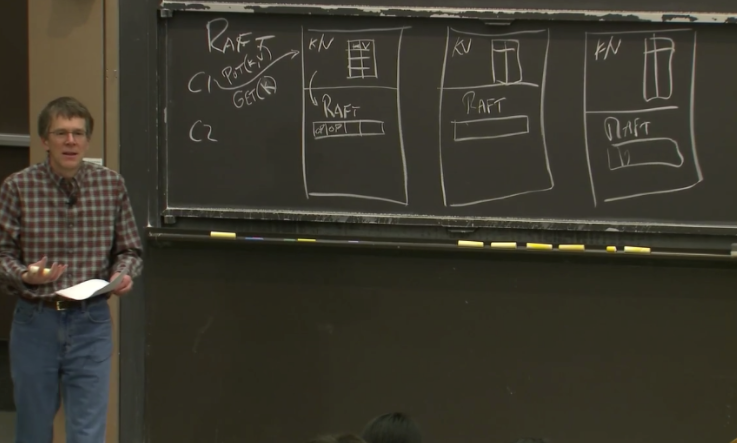 RAFT
C1
PUT(K,V)
GET(K)
C2
K/V
KV
RAFT
OP OP
KV
RAFT
K/V
RAFT